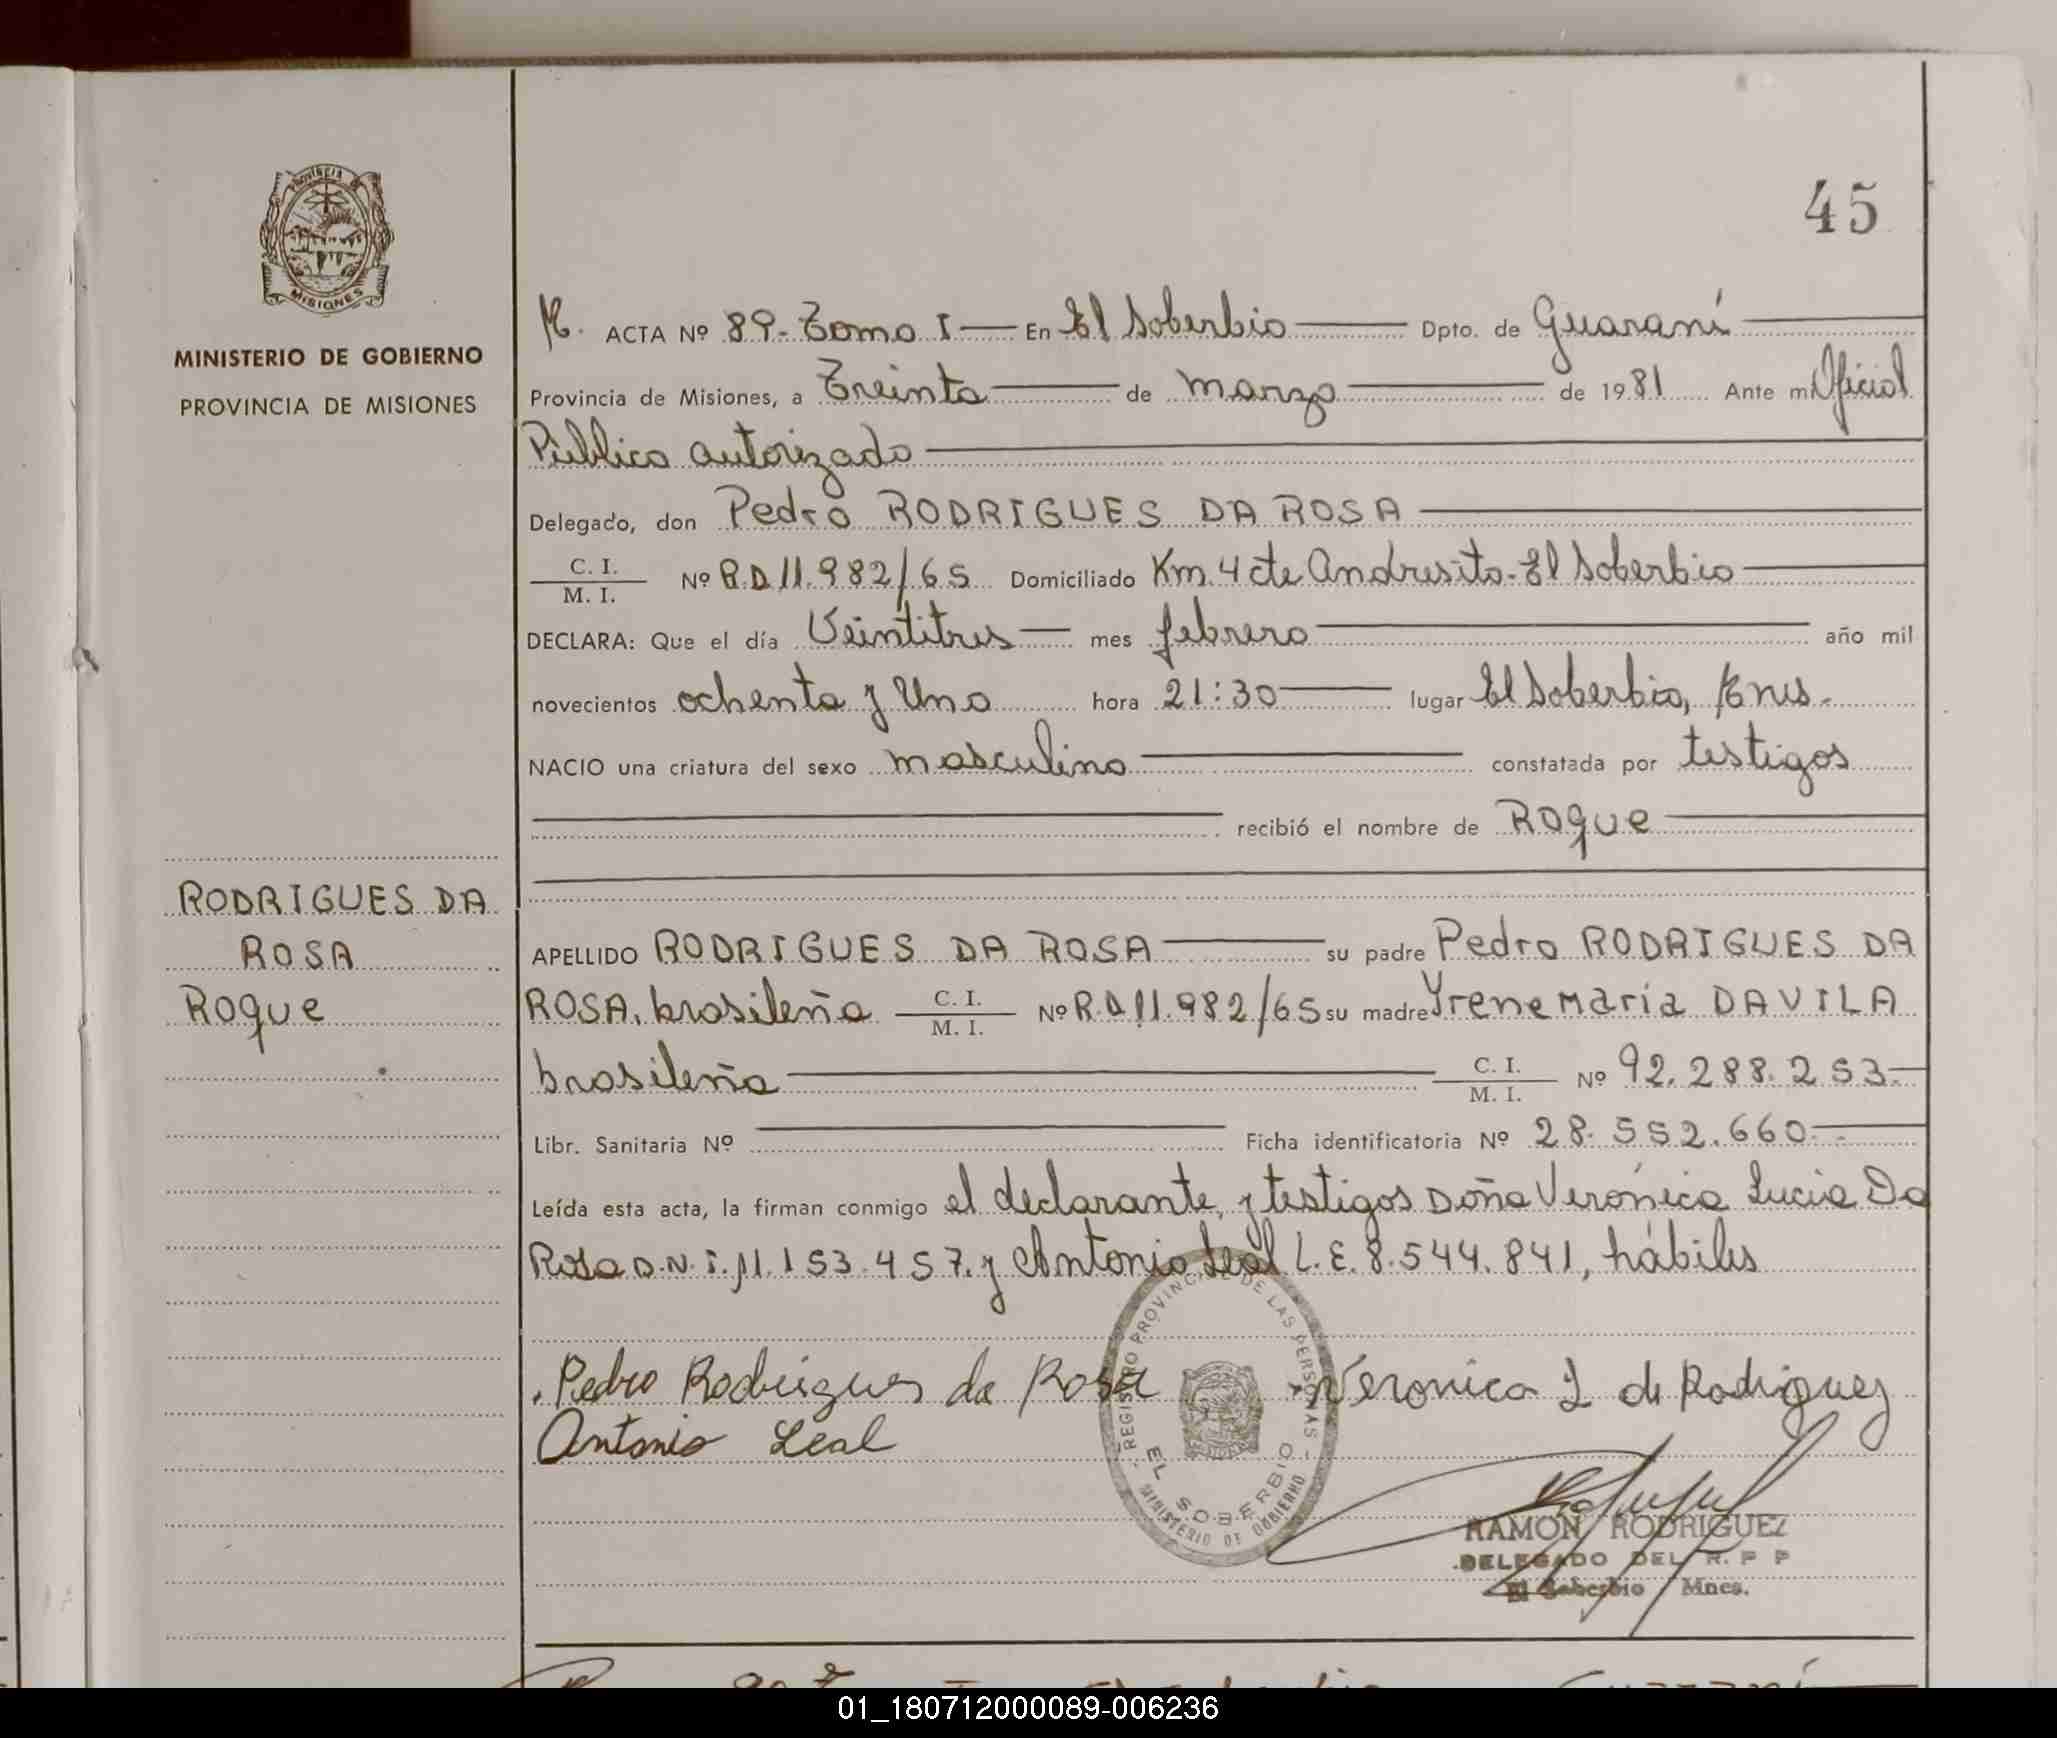 45
PROVINCIA DE
MISIONES
MINISTERIO DE GOBIERNO
PROVINCIA DE MISIONES
RODRIGUES DA
ROSA
Roque
M. ACTA Nº 89- Tomo I En El Soberbio Dpto. de Guaraní
Provincia de Misiones, a Treinta de marzo de 1981 Ante mi Oficial
Público autorizado
Delegado, don Pedro RODRIGUES DA ROSA
C. I.
M. I. Nº R.D 11.982/65 Domiciliado Km. 4 cte Andresito- El Soberbio
DECLARA: Que el día Veintitres mes febrero año mil
novecientos ochenta y Uno hora 21:30 lugar El Soberbio, Mnes.
NACIO una criatura del sexo masculino constatada por testigos
recibió el nombre de Roque
APELLIDO RODRIGUES DA ROSA su padre Pedro RODRIGUES DA
ROSA, brasileña C. I. M. I. Nº R.D 11.982/65 su madre Yrene María DAVILA
brasileña C. I. M. I. Nº 92.288.253.
Libr. Sanitaria Nº Ficha identificatoria Nº 28.552.660
Leída esta acta, la firman conmigo el declarante, y testigos Doña Verónica Lucia Da
Rosa D.N.I. 11.153.457. y Antonio Leal L.E. 8.544.841, hábiles
Pedro Rodrigues da Rosa Veronica L de Rodriguez
Antonio Leal
REGISTRO PROVINCIAL DE LAS PERSONAS
EL SOBERBIO
MINISTERIO DE GOBIERNO
RAMON RODRIGUEZ
DELEGADO DEL R. P P
El Soberbio Mnes.
01_180712000089-006236